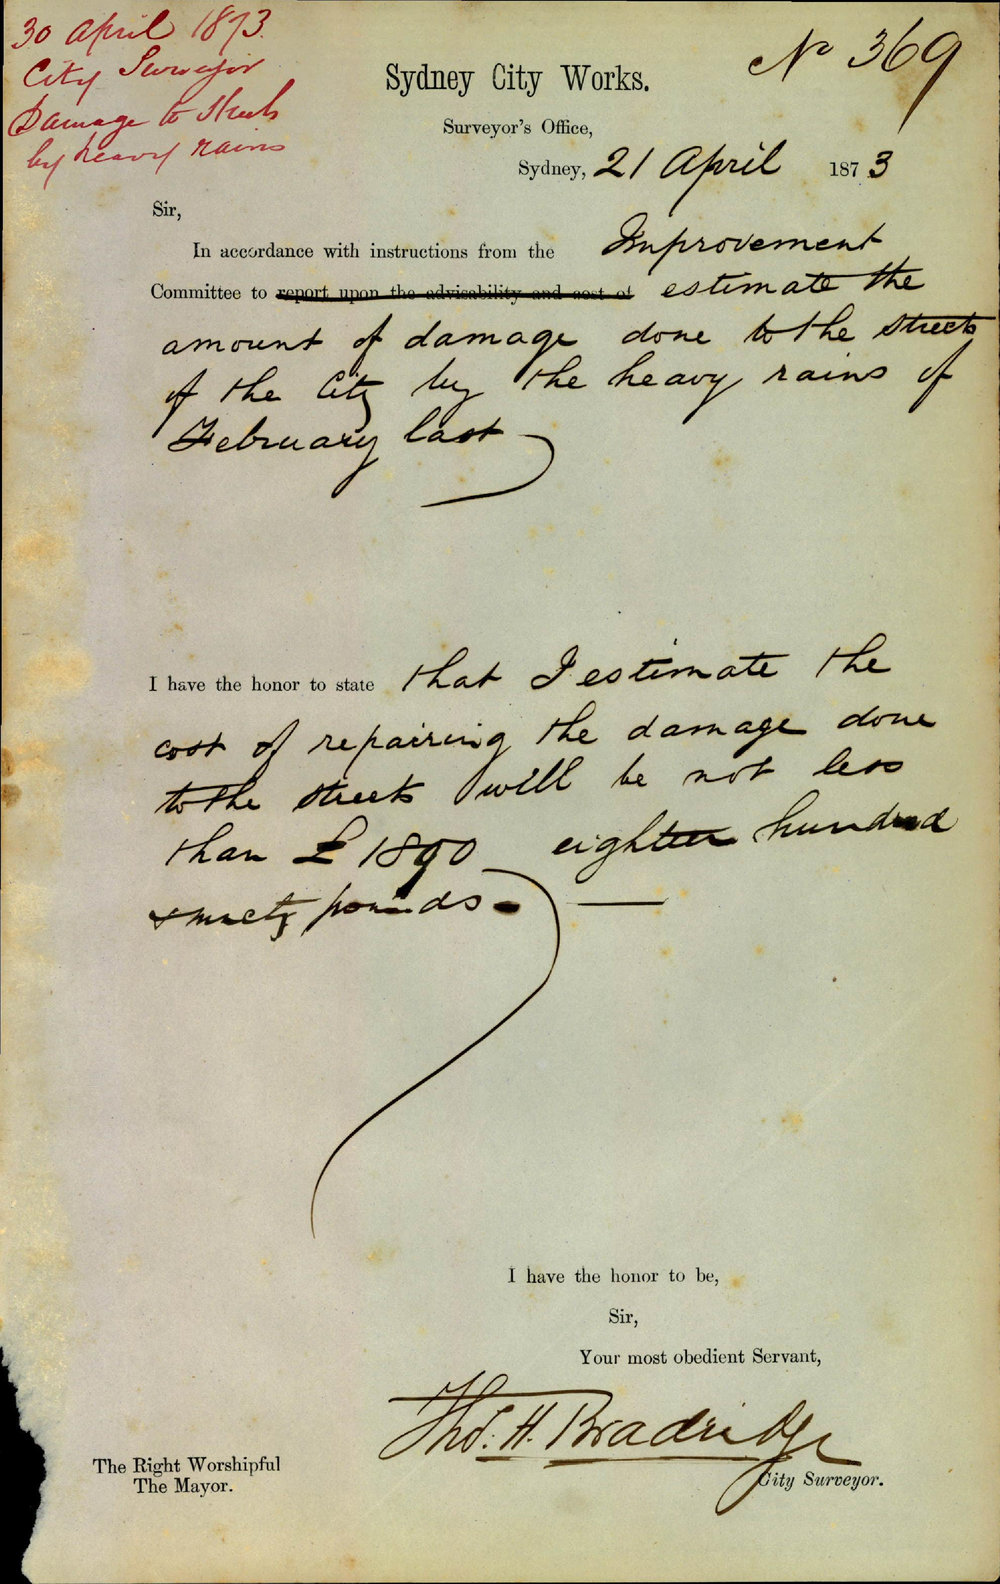 30 April 1873.
City Surveyor
Damage to Streets
by heavy rains
No 369
Sydney City Works.
Surveyor's Office,
Sydney, 21 April 1873
Sir,
In accordance with instructions from the Improvement
Committee to report upon the advisability and cost of estimate the
amount of damage done to the streets
of the City by the heavy rains of
February last
I have the honor to state that I estimate the
cost of repairing the damage done
to the streets will be not less
than £1890 eighteen hundred
& ninety pounds.
I have the honor to be,
Sir,
Your most obedient Servant,
Thos. H. Bradridge
City Surveyor.
The Right Worshipful
The Mayor.